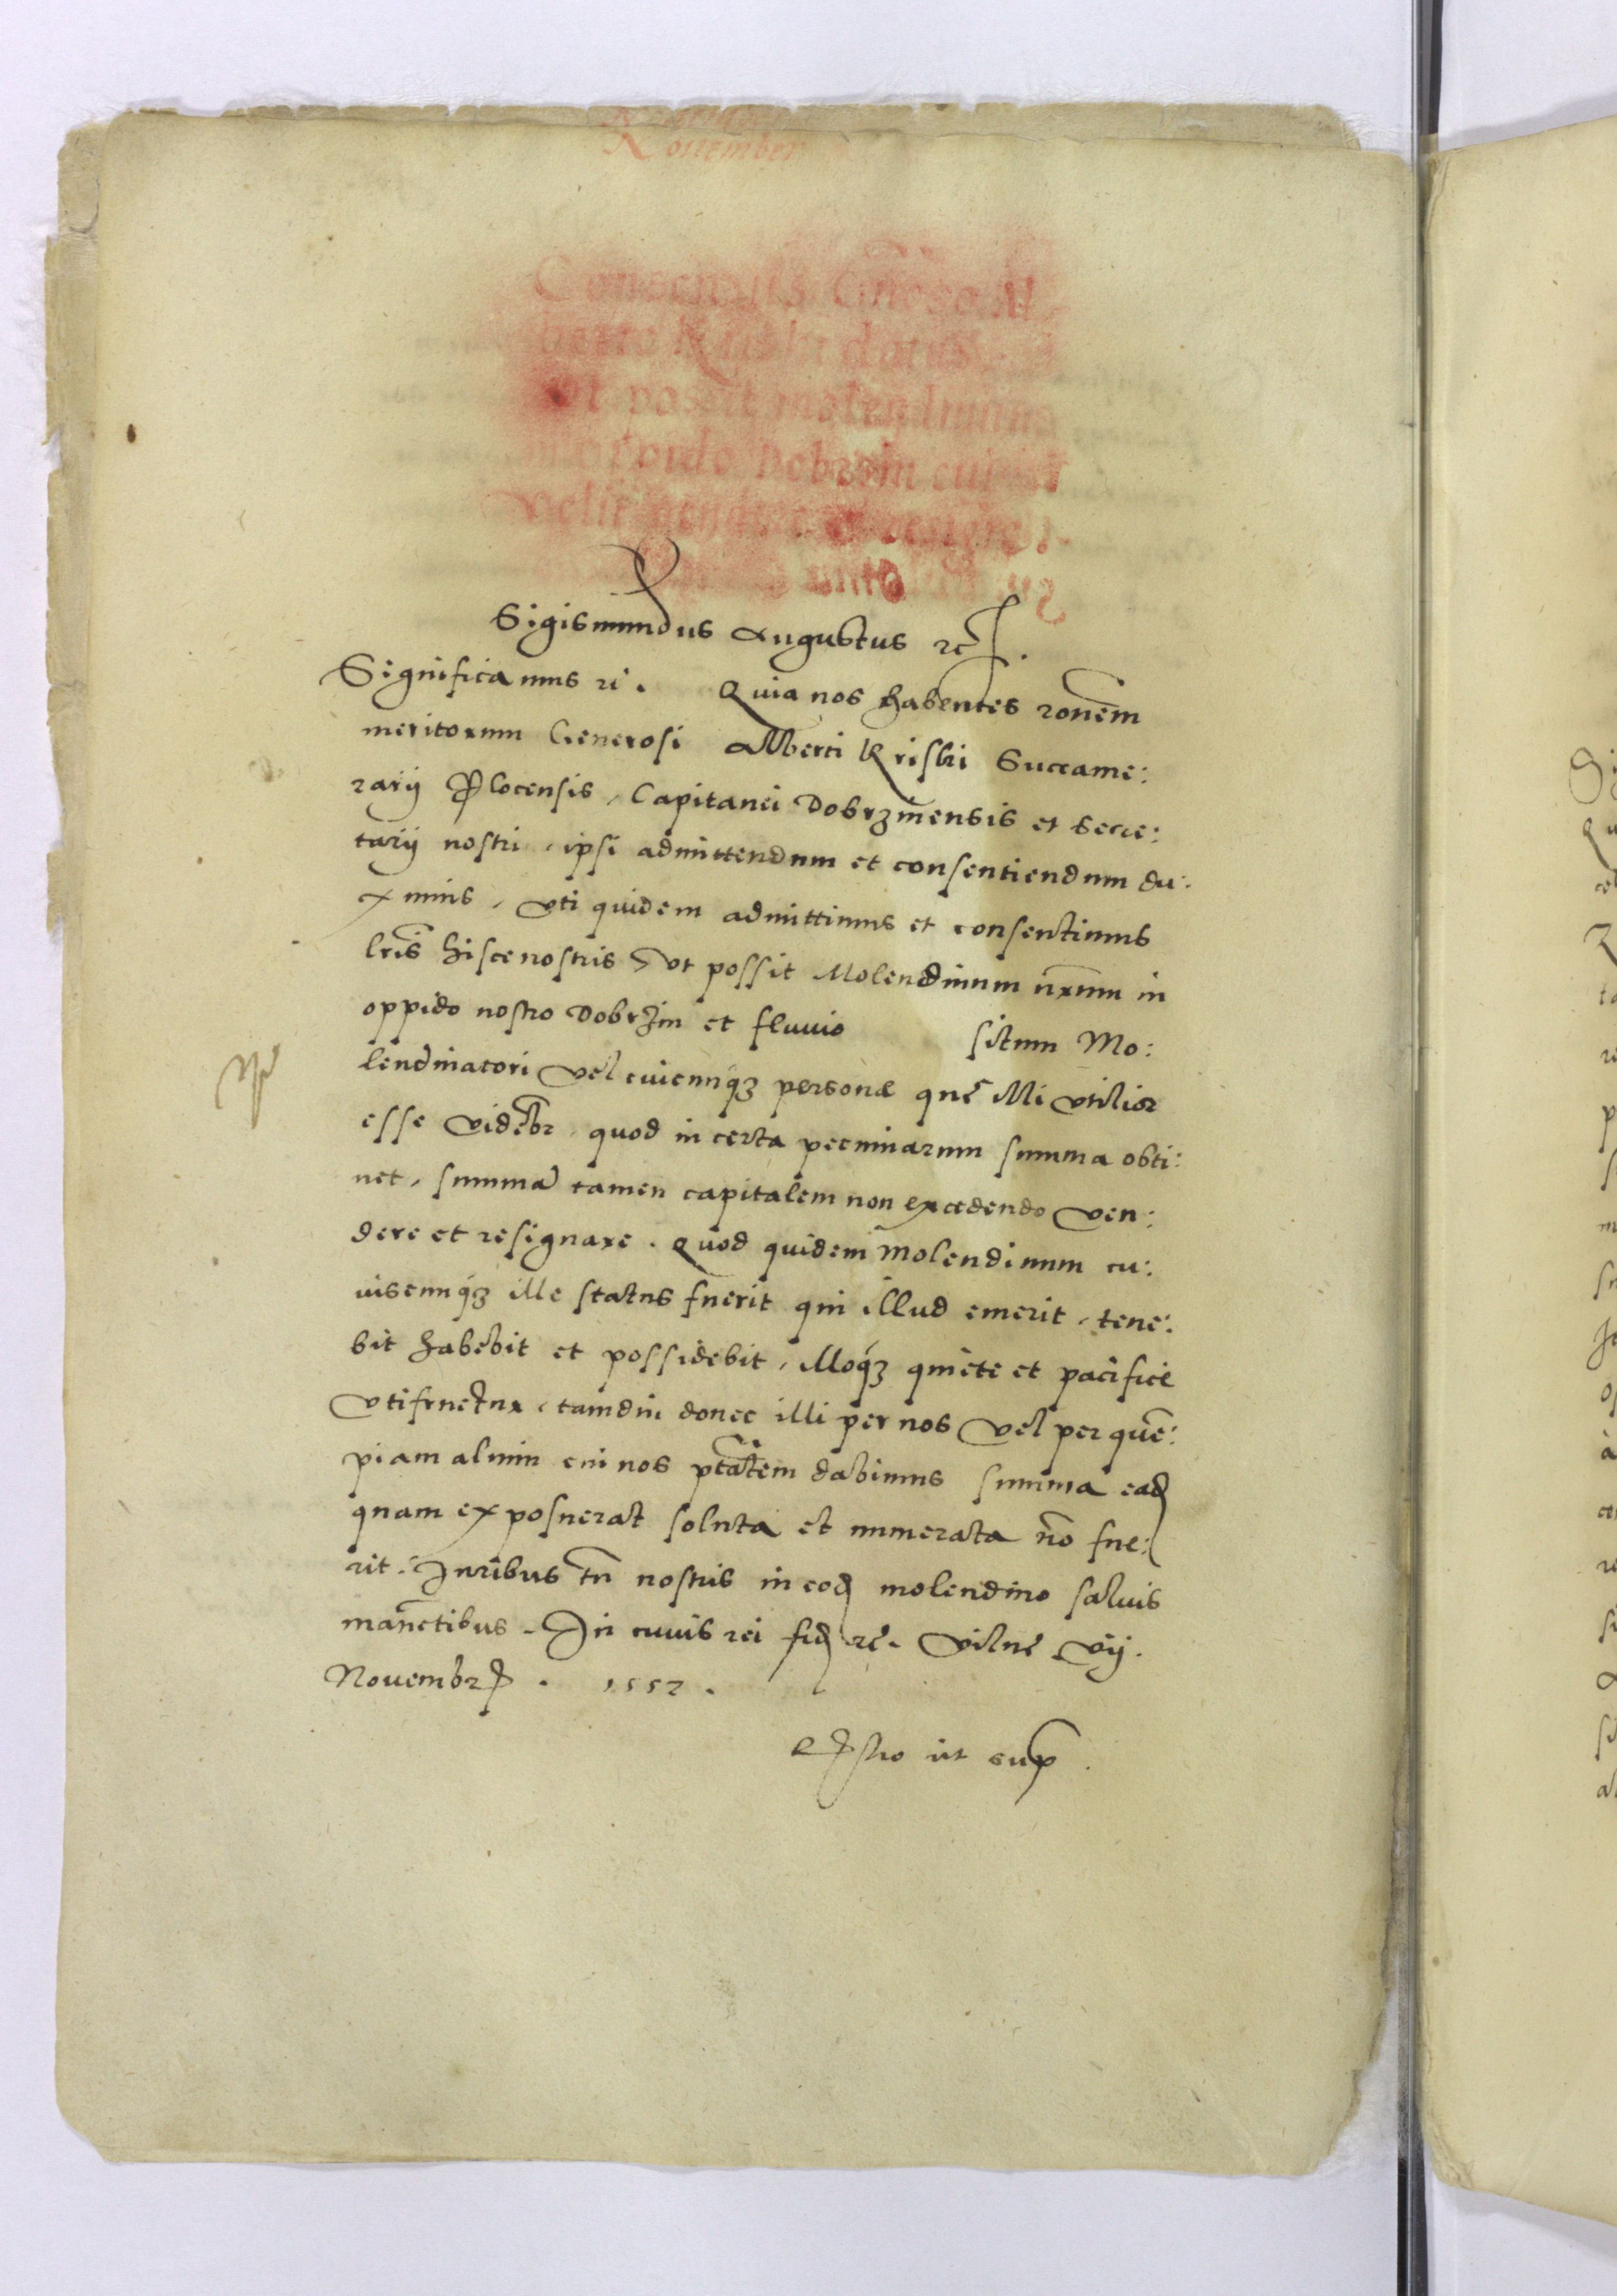 November
Consensus Gnoso Al
berto Kriski datus
Ut possit molendinum
in oppido Dobrzin cui
velit vendere et resig
Sigismundus Augustus etc.
Significamus etc. Quia nos habentes ronem
meritorum Generosi Alberti Kriski Succame:
rarij Plocensis, Capitanei Dobrzinensis et Secre:
tarij nostri, ipsi admittendum et consentiendum du:
ximus, uti quidem admittimus et consentimus
lris hisce nostris, Ut possit Molendinum nrum in
oppido nostro Dobrzin et fluvio situm Mo:
lendinatori vel cuicunqz personæ que illi utilior
esse videbr, quod in certa pecuniarum summa obti:
net, summa tamen capitalem non excedendo ven:
dere et resignare. Quod quidem Molendinum cu:
iuscunqz ille status fuerit qui illud emerit, tene:
bit habebit et possidebit, illoqz quiete et pacifice
utifruetur, tamdiu donec illi per nos vel per que:
piam alium cui nos ptatem dabimus summa ead
quam exposuerat soluta et numerata no fue:
rit. Iuribus tn nostris in eod molendino salvis
manentibus. In cuius rei fid etc. Vilne vij.
Novembr. 1552.
ut sup.